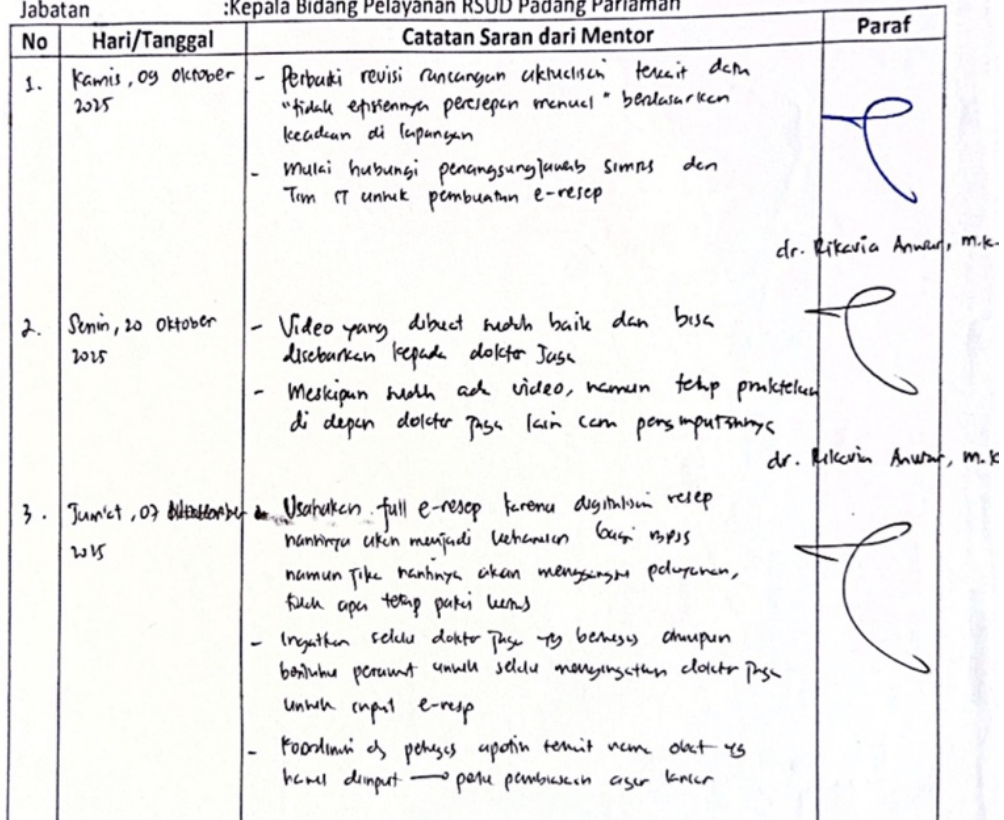 Jabatan :Kepala Bidang Pelayanan RSUD Padang Pariaman
No Hari/Tanggal Catatan Saran dari Mentor Paraf
1. Kamis, 09 Oktober 2025
- Perbaiki revisi rancangan aktualisasi terkait data
"tidak efisiennya peresepan manual" berdasarkan
keadaan di lapangan
- Mulai hubungi penanggungjawab SIMRS dan
Tim IT untuk pembuatan e-resep
dr. Rikavia Anwar, m.k.
2. Senin, 20 Oktober 2025
- Video yang dibuat sudah baik dan bisa
disebarkan kepada dokter Jaga
- Meskipun sudah ada video, namun tetap praktekan
di depan dokter jaga lain cara penginputannya
dr. Rikavia Anwar, m.k
3. Jum'at, 07 2025
Usahakan full e-resep karena digitalisasi resep
nantinya akan menjadi bagi BPJS
namun jika nantinya akan pelayanan,
tidak apa tetap pakai kertas
- Ingatkan selalu dokter jaga yg bertugas ataupun
perawat untuk selalu mengingatkan dokter jaga
untuk input e-resep
- Koordinasi dg petugas apotik terkait nama obat yg
harus diinput → perlu pembiasaan agar lancar